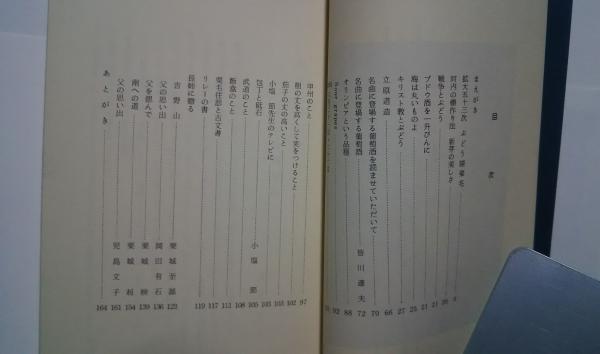 目次
まえがき
拡大五十三次 ぶどう
対内の棚作り法 新芽の美しさ 9
戦争とぶどう 20
ブドウ酒を一升びんに 21
海は丸いものよ 21
キリスト教とぶどう 25
立原道造 27
名曲に登場する葡萄酒を読ませていただいて 皆川達夫
名曲に登場する葡萄酒 72
オリンピアという品種 88
92
甲州のこと 97
樹の丈を高くして実をつけること 102
茄子の丈の高いこと 103
小塩節先生のテレビに 103
包丁と砥石 小塩節 105
武道のこと 108
飯盒のこと 111
栗毛任部と古文書 117
リレーの書 119
長姉に贈る
吉野山 栗城至誠 123
父の思い出 岡田有石 136
父を偲んで 栗城 映 139
南への道 栗城 154
父の思い出 児島文子 161
あとがき 164